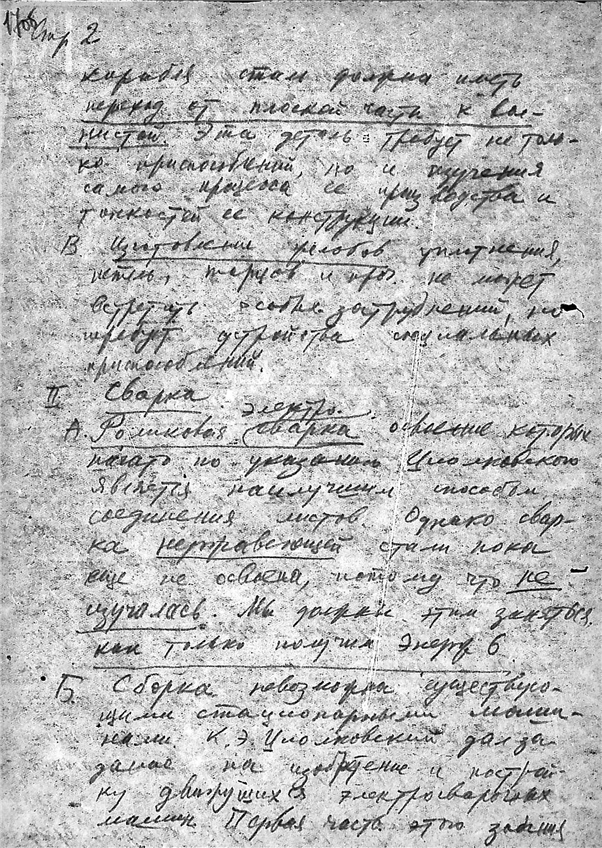 Стр 2
корабля стали должна иметь
переход от плоской части к вол-
нистой. Эта деталь требует не толь-
ко приспособлений, но и изучения
самого процесса ее производства и
тонкостей ее конструкции.
В Изготовление уплотнения,
петель, торцов и проч. не может
встретить особых затруднений, но
требует устройства специальных
приспособлений.
II Сварка
электро
А. Роликовая сварка освоение которых
начато по указанию Циолковского
является наилучшим способом
соединения листов. Однако свар-
ка нержавеющей стали пока
еще не освоена, потому что не
изучалась. Мы должны этим заняться,
как только получим энерг б
Б Сборка невозможна существую-
щими стационарными маши-
нами. К.Э. Циолковский дал за-
дание на изобретение и построй-
ку движущихся электросварочных
машин. Первая часть этого задания